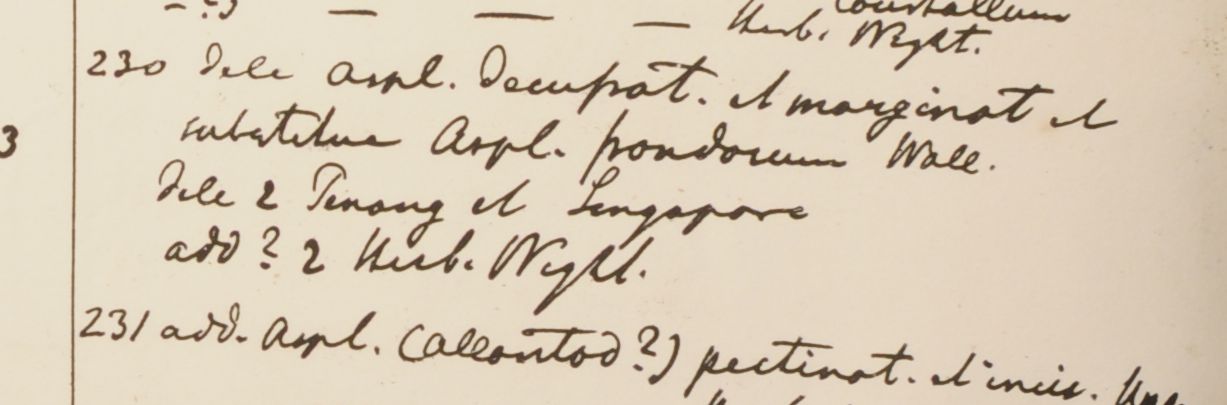 Herb. Wight.
230 dele Aspl. decussat. et marginat et
3
substitue Aspl. frondosum Wall.
dele 2 Penang et Singapore
add ? 2 Herb. Wight.
231 add. Aspl. (Allantod?) pectinat. et incis.